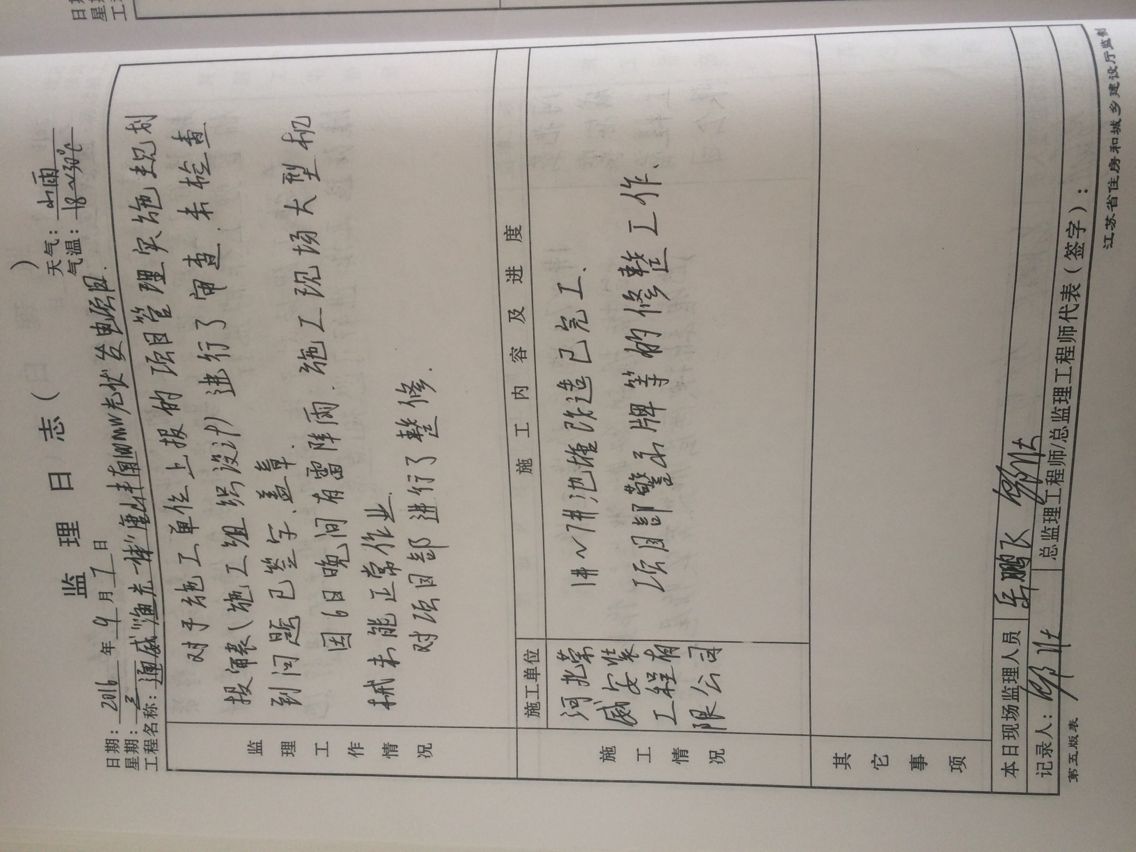 监 理 日 志（ ）
日期：2016 年 9 月 7 日 天气：小雨
星期：三 气温：18~30℃
工程名称：通威"渔光一体"唐山丰南10MW光伏发电项目.
监理工作情况
对于施工单位上报的项目管理实施规划
报审表(施工组织设计)进行了审查.未检查
到问题已签字、盖章.
因6日晚间有雷阵雨.施工现场大型机
械未能正常作业.
对项目部进行了整修.
施工情况
施工单位 施 工 内 容 及 进 度
河北荣
威安装
工程有
限公司
1#~7#池塘改造已完工.
项目部警示牌等的修整工作.
其它事项
本日现场监理人员 岳鹏飞
记录人： 总监理工程师/总监理工程师代表（签字）：
第五版表 江苏省住房和城乡建设厅监制